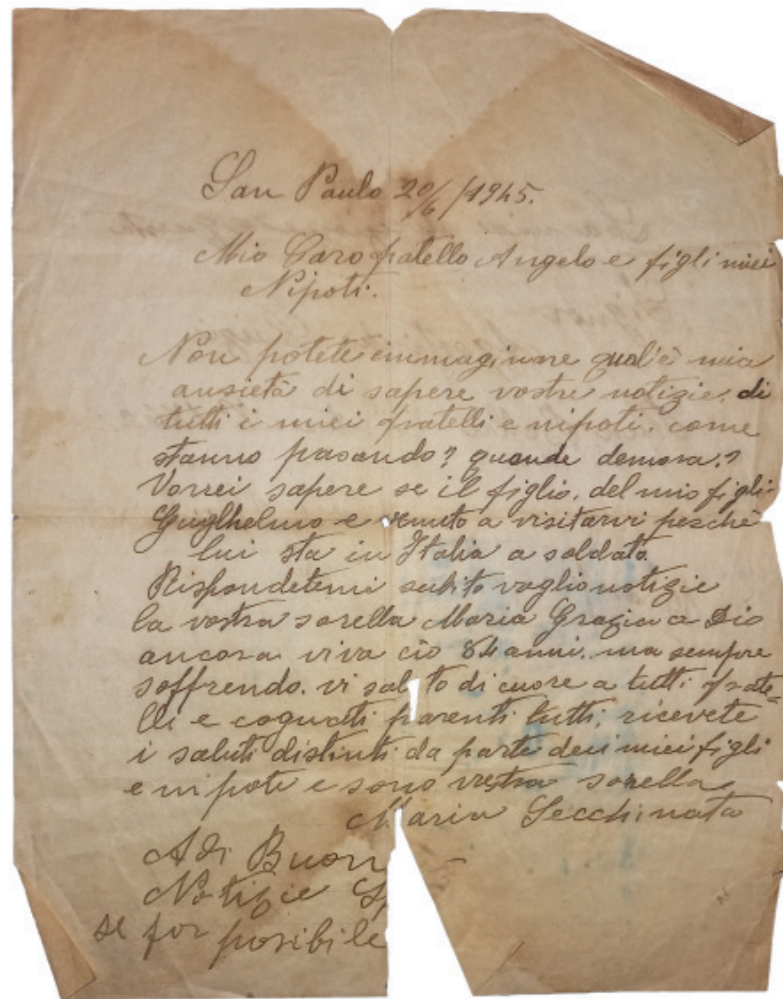 San Paulo 20/6/1945.
Mio Caro fratello Angelo e figli miei
Nipoti.
Non potete immaginare qual'è mia
ansietà di sapere vostre notizie. di
tutti i miei fratelli e nipoti. come
stanno pasando? quande demora.?
Vorrei sapere se il figlio. del mio figlio
Guglhelmo e venuto a visitarvi perchè
lui sta in Italia a soldato.
Rispondetemi subito voglio notizie
la vostra sorella Maria Grazia a Dio
ancora viva ciò 84 anni. ma sempre
soffrendo. vi saluto di cuore a tutti frate-
lli e cognatti parenti tutti, ricevete
i saluti distinti da parte dei miei figli
e nipote e sono vostra sorella
Maria Secchinato
Adi Buon
Notizie
se for posibile